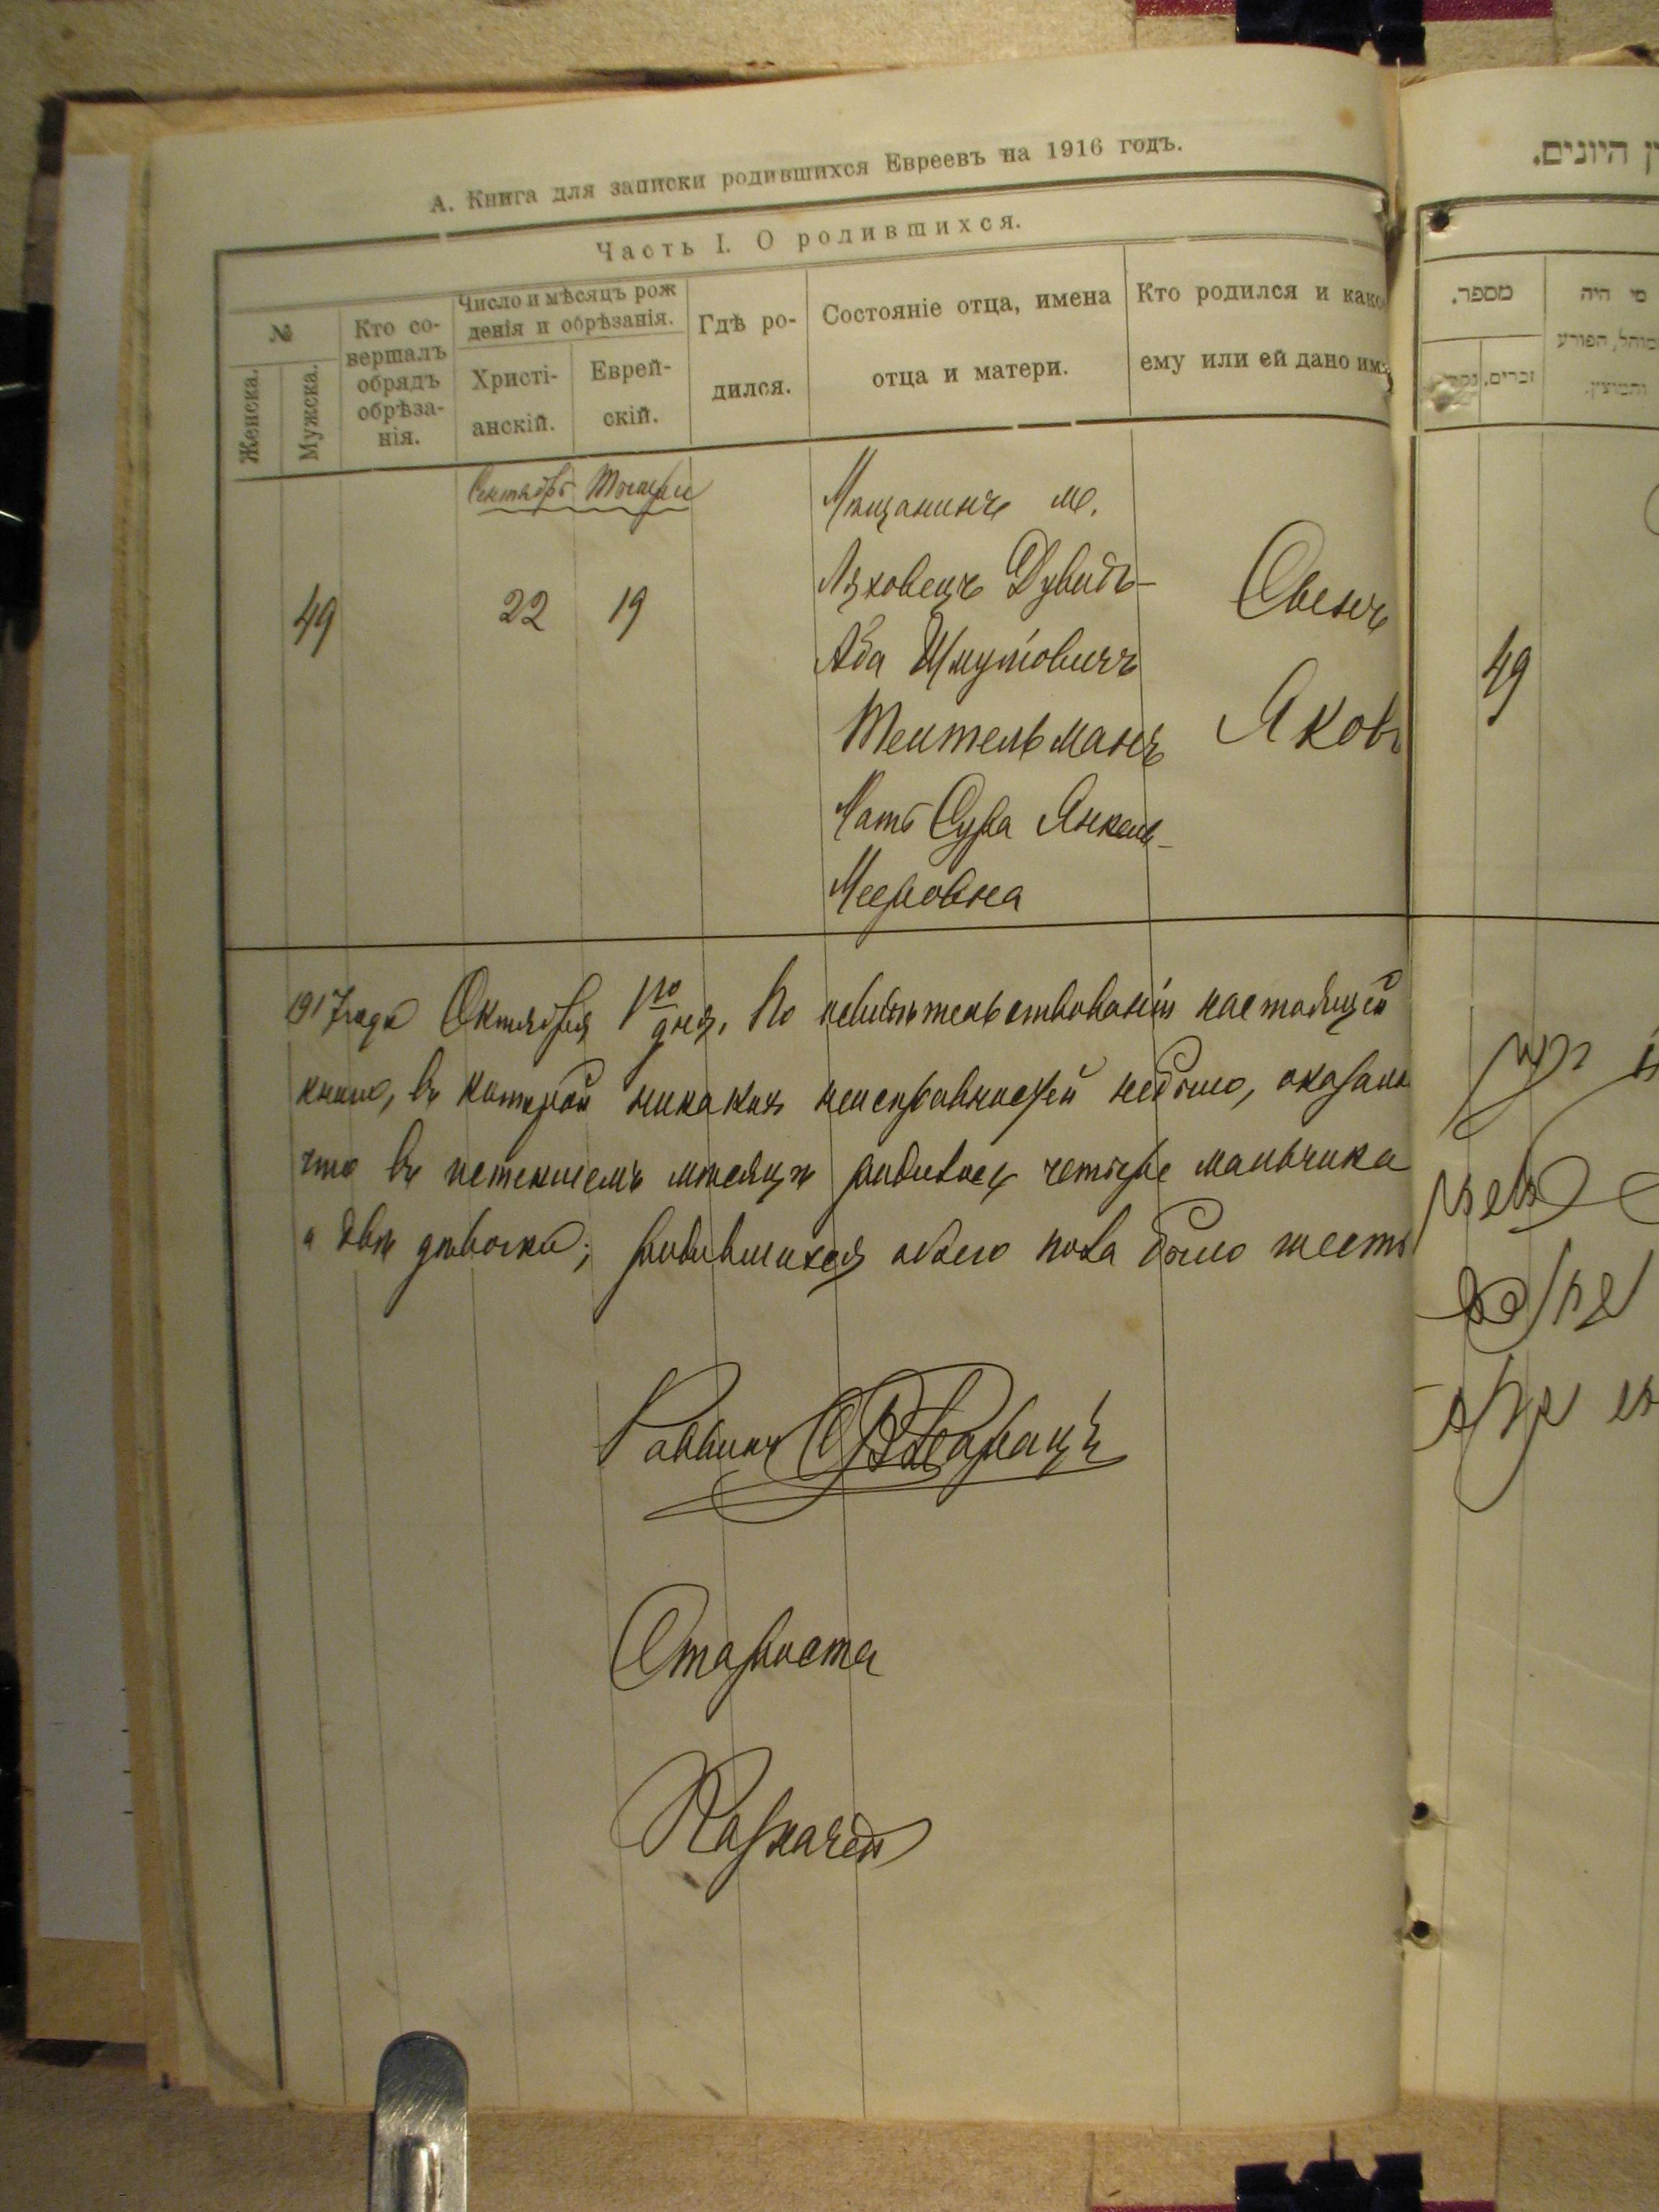 А. Книга для записки родившихся Евреевъ на 1916 годъ.
Часть I. О родившихся.
№
Женска.
Мужска.
Кто со-
вершалъ
обрядъ
обрѣза-
нія.
Число и мѣсяцъ рож
денія и обрѣзанія.
Христі-
анскій.
Еврей-
скій.
Гдѣ ро-
дился.
Состояніе отца, имена
отца и матери.
Кто родился и како
ему или ей дано им
Сентябрь
49
22
19
Мѣщанинъ м.
Ляховецъ Дувидъ-
Аба Шмулёвичъ
Тейтельманъ
Мать Сура Янкель-
Мееровна
Сынъ
Яковъ
1917 года Октября 1го дня. По освидѣтельствованіи настоящей
книги, въ которой никакихъ неисправностей небыло, оказалось
что въ истекшемъ мѣсяцѣ родилось четыре мальчика
и двѣ дѣвочки; родившихся обоего пола было шесть
Раввинъ
Староста
Казначей
ן היונים.
מספר.
זכרים.
מי היה
מוהל, הפורע
והמוצץ.
49